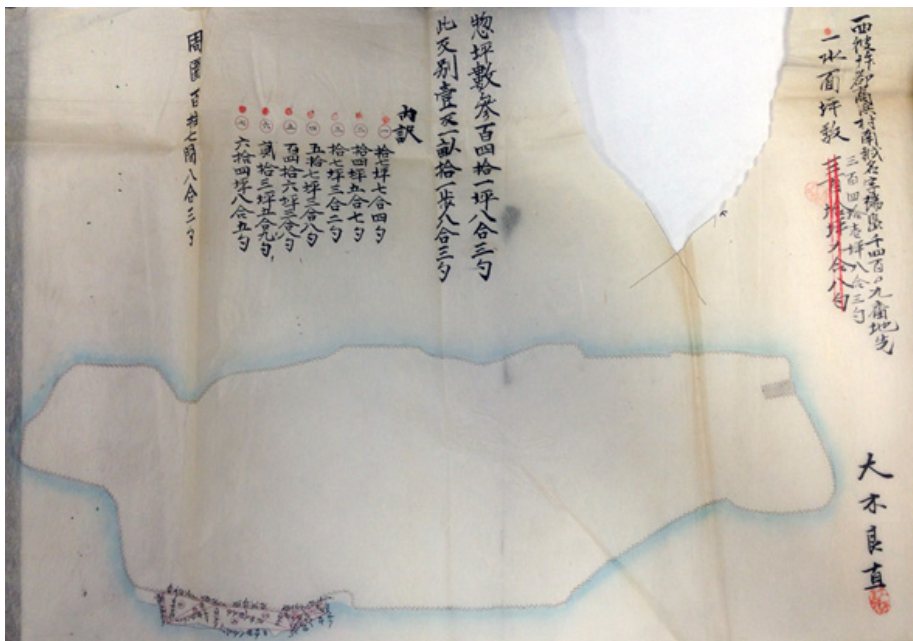 西彼杵郡高浜村南越名字端島千四百〇九番地先
三百四拾壱坪八合三勺
一水面坪数
大木良直
惣坪數參百四拾一坪八合三勺
此反別壹反一畝拾一歩八合三勺
内訳
一 拾七坪七合四勺
二 拾四坪五合七勺
三 拾七坪三合二勺
四 五拾七坪三合八勺
五 百四拾六坪三合八勺
六 貳拾三坪五合九勺
七 六拾四坪八合五勺
周圍百拾七間八合三勺